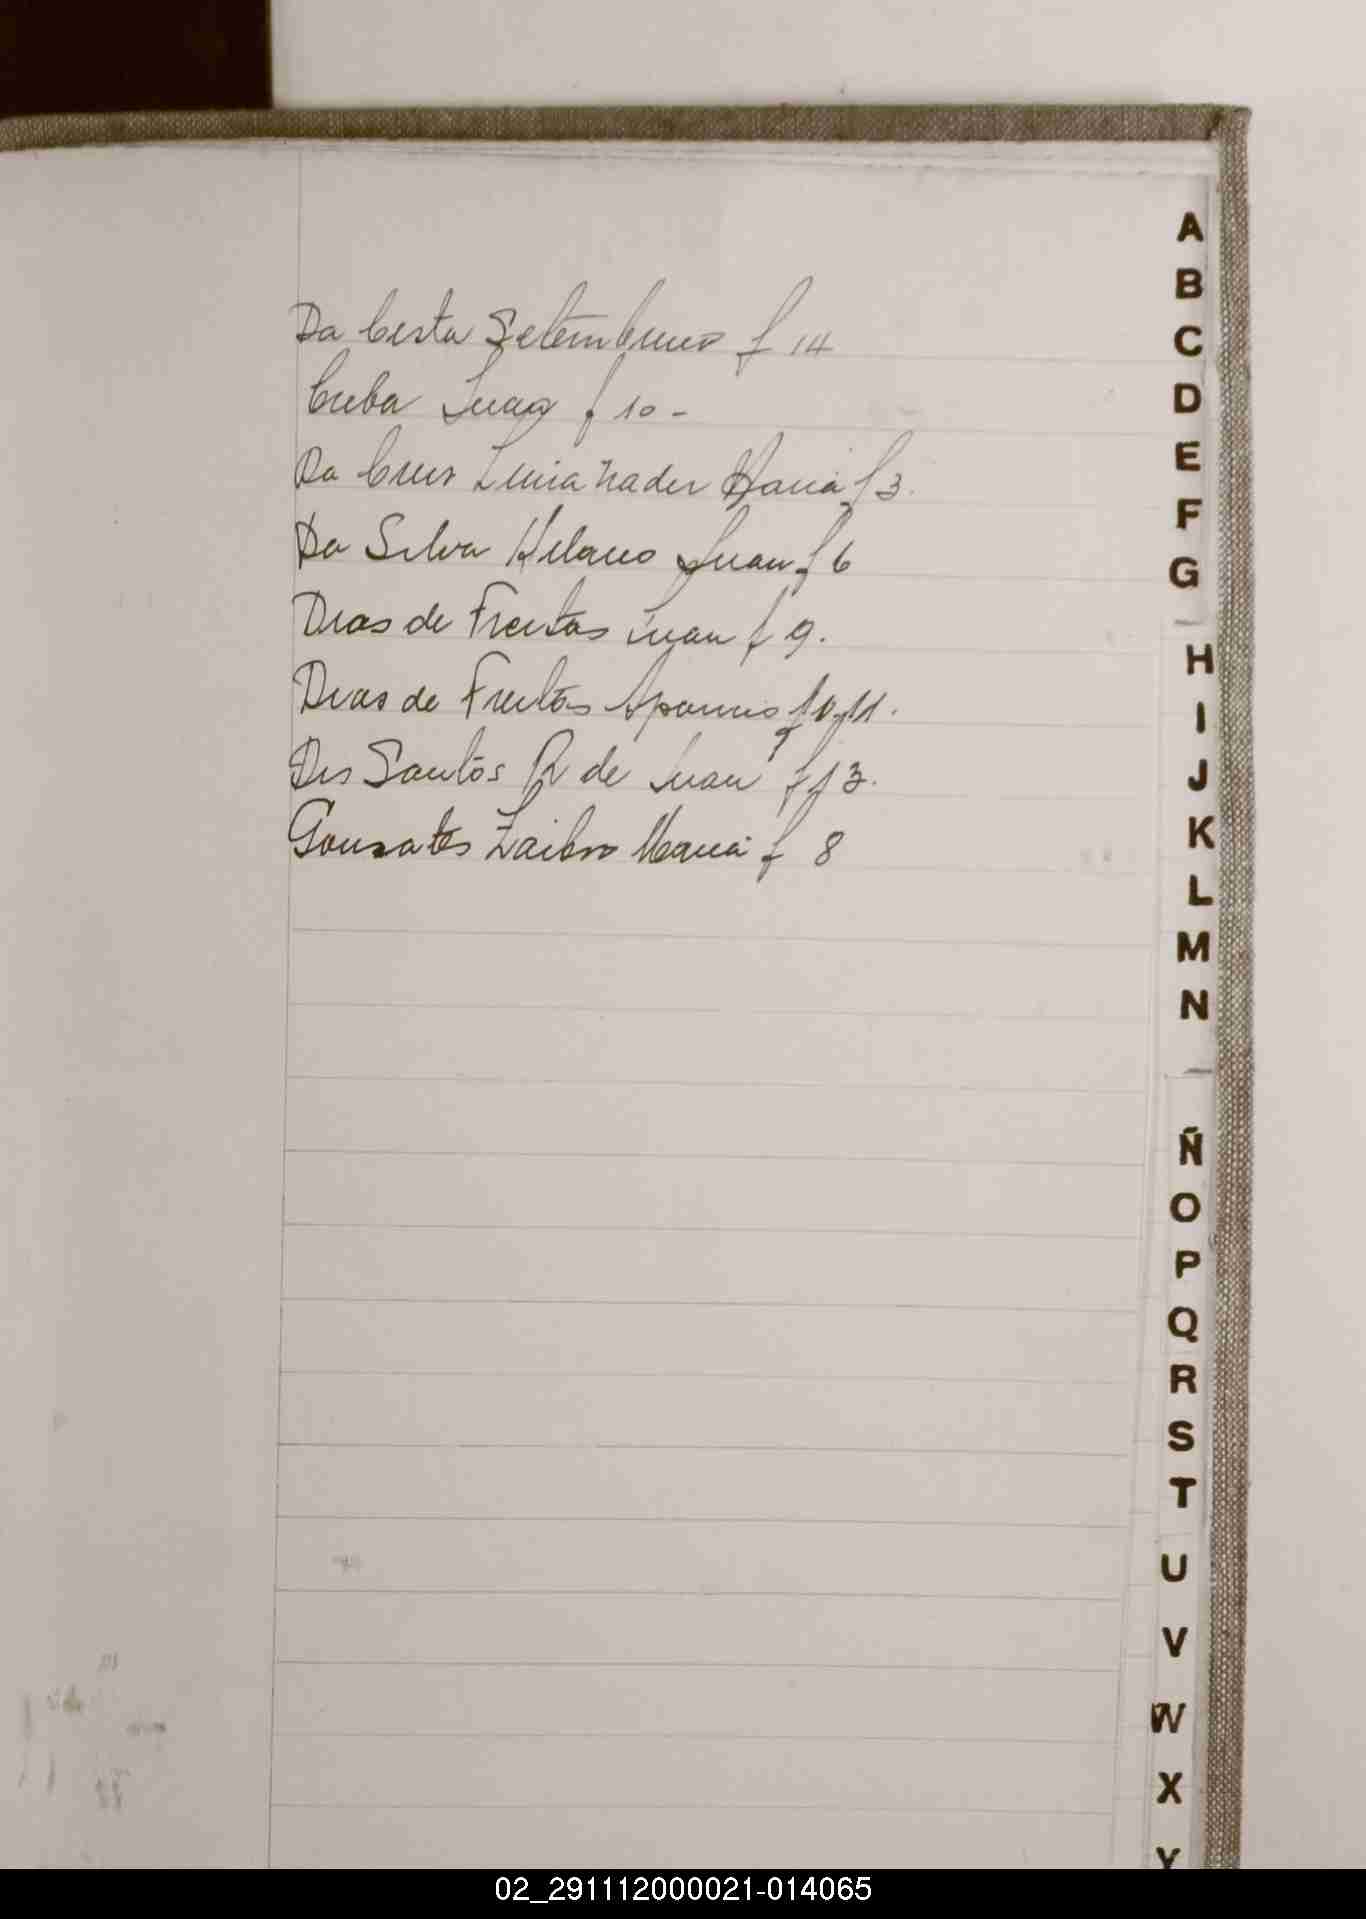 Da Costa Setembrino f 14
Cuba Juan f 10 -
Da Cruz Luisa Nader Maria f 3.
Da Silva Hilario Juan f 6
Dias de Freitas Juan f 9.
Dias de Freitas Aparicio f 11.
Dos Santos R de Juan f 13.
Gonzales Maria f 8
A
B
C
D
E
F
G
H
I
J
K
L
M
N
Ñ
O
P
Q
R
S
T
U
V
W
X
Y
02_291112000021-014065